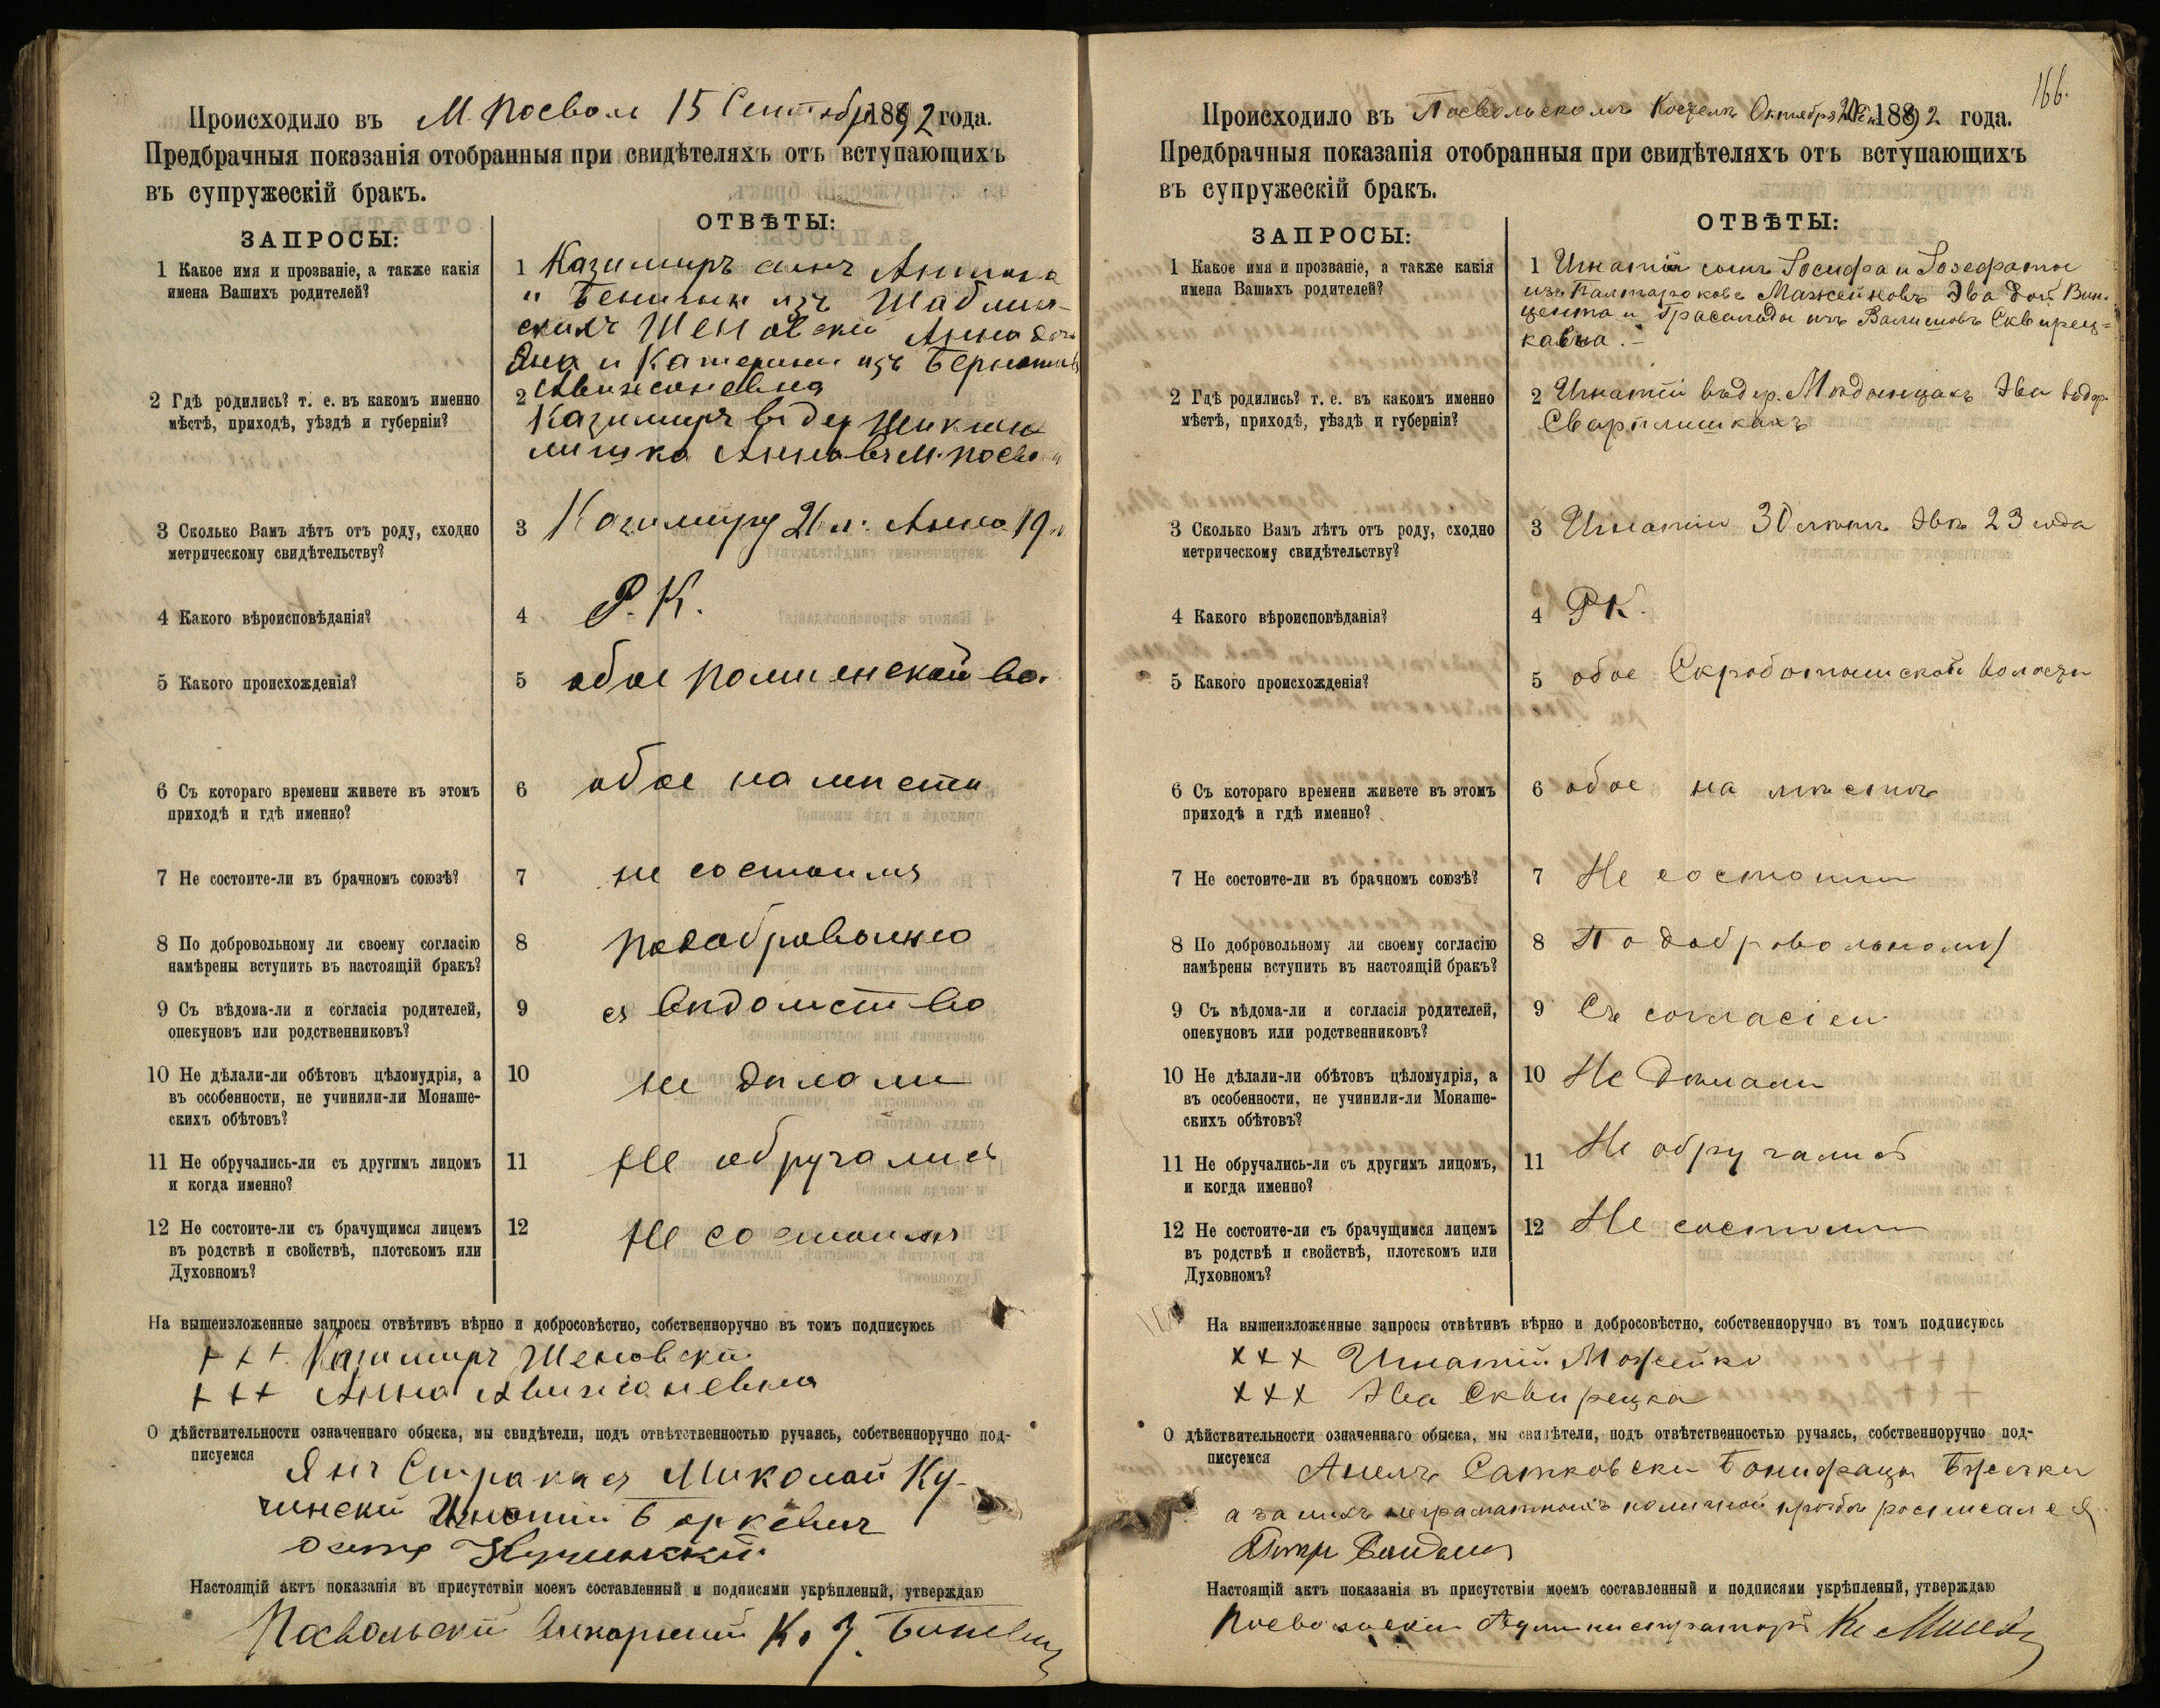 Происходило въ М. Посвом 15 Сентября 1892 года.
Предбрачныя показанія отобранныя при свидѣтеляхъ отъ вступающихъ
въ супружескій бракъ.
ЗАПРОСЫ:
ОТВѢТЫ:
1 Какое имя и прозваніе, а также какія
имена Вашихъ родителей?
1 Казимиръ сынъ Антона
и Бенигны изъ Шаблин-
скихъ Шеновскій Анна дочь
Яна и Катерины изъ
Авижоневна
2 Гдѣ родились? т. е. въ какомъ именно
мѣстѣ, приходѣ, уѣздѣ и губерніи?
2 Казимиръ в дер
Анна въ М.
3 Сколько Вамъ лѣтъ отъ роду, сходно
метрическому свидѣтельству?
3 Казимиру 21 л. Анна 19 л
4 Какого вѣроисповѣданія?
4 Р. К.
5 Какого происхожденія?
5 обое во.
6 Съ котораго времени живете въ этомъ
приходѣ и гдѣ именно?
6 обое на мисти
7 Не состоите-ли въ брачномъ союзѣ?
7 не состоимъ
8 По добровольному ли своему согласію
намѣрены вступить въ настоящій бракъ?
8 подобровольно
9 Съ вѣдома-ли и согласія родителей,
опекуновъ или родственниковъ?
9 съ
10 Не дѣлали-ли обѣтовъ цѣломудрія, а
въ особенности, не учинили-ли Монаше-
скихъ обѣтовъ?
10 не дилали
11 Не обручались-ли съ другимъ лицомъ
и когда именно?
11 Не обручались
12 Не состоите-ли съ брачущимся лицемъ
въ родствѣ и свойствѣ, плотскомъ или
Духовномъ?
12 Не состоимъ
На вышеизложенные запросы отвѣтивъ вѣрно и добросовѣстно, собственноручно въ томъ подписуюсь
+ + + Казимиръ Шеновскій
+ + + Анна Авижоневна
О дѣйствительности означеннаго обыска, мы свидѣтели, подъ отвѣтственностью ручаясь, собственноручно под-
писуемся Янъ Миколай Ку-
чинскій Игнатій Боркевичъ
Кучинскій.
Настоящій актъ показанія въ присутствіи моемъ составленный и подписями укрѣпленый, утверждаю
Посвольскій Викарный К.
166.
Происходило въ Посвольскомъ Костелѣ Октября 1892 года.
Предбрачныя показанія отобранныя при свидѣтеляхъ отъ вступающихъ
въ супружескій бракъ.
ЗАПРОСЫ:
ОТВѢТЫ:
1 Какое имя и прозваніе, а также какія
имена Вашихъ родителей?
1 Игнатій сынъ Іосифа и Іозефаты
изъ Мажейковъ Эва доч Вин-
цента и изъ Сквирец-
кавна.-
2 Гдѣ родились? т. е. въ какомъ именно
мѣстѣ, приходѣ, уѣздѣ и губерніи?
2 Игнатій въ дер. Эва въ дер.
3 Сколько Вамъ лѣтъ отъ роду, сходно
метрическому свидѣтельству?
3 Игнатію 30 лѣтъ Эвѣ 23 года
4 Какого вѣроисповѣданія?
4 РК.
5 Какого происхожденія?
5 обое волости
6 Съ котораго времени живете въ этомъ
приходѣ и гдѣ именно?
6 обое на мѣстѣ
7 Не состоите-ли въ брачномъ союзѣ?
7 Не состоими
8 По добровольному ли своему согласію
намѣрены вступить въ настоящій бракъ?
8 По добровольному
9 Съ вѣдома-ли и согласія родителей,
опекуновъ или родственниковъ?
9 Съ согласіем
10 Не дѣлали-ли обѣтовъ цѣломудрія, а
въ особенности, не учинили-ли Монаше-
скихъ обѣтовъ?
10 Не дѣлали
11 Не обручались-ли съ другимъ лицомъ,
и когда именно?
11 Не обручались
12 Не состоите-ли съ брачущимся лицемъ
въ родствѣ и свойствѣ, плотскомъ или
Духовномъ?
12 Не состоими
На вышеизложенные запросы отвѣтивъ вѣрно и добросовѣстно, собственноручно въ томъ подписуюсь
× × × Игнатій Можейко
× × × Эва Сквирецка
О дѣйствительности означеннаго обыска, мы свидѣтели, подъ отвѣтственностью ручаясь, собственноручно под-
писуемся Сатковски Бонифацы
а за нихъ неграматныхъ по личной прозбы росписался
Настоящій актъ показанія въ присутствіи моемъ составленный и подписями укрѣпленый, утверждаю
Посвольски Администраторъ